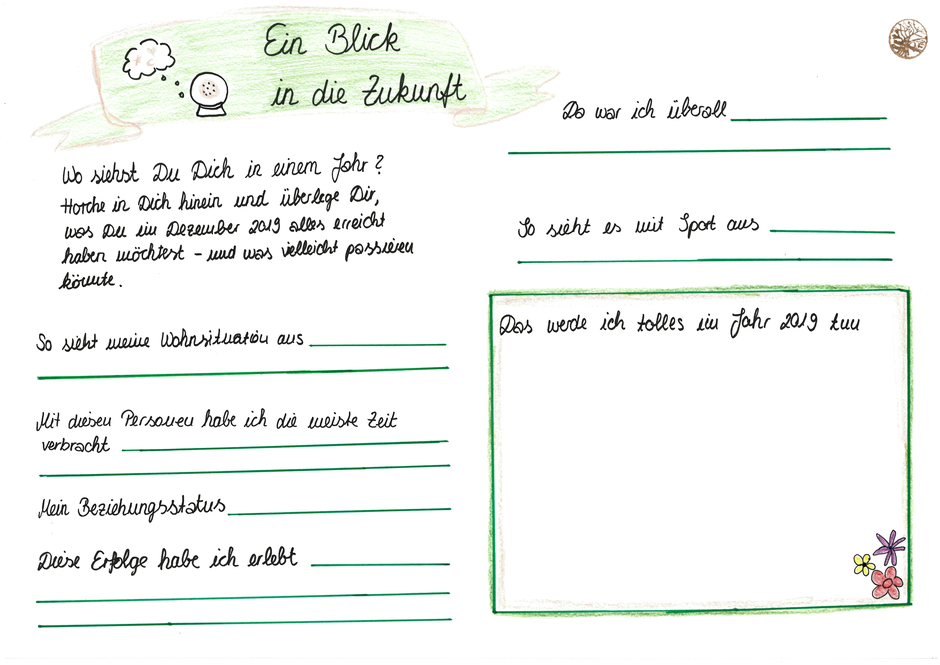 Ein Blick
in die Zukunft
Wo siehst Du Dich in einem Jahr?
Horche in Dich hinein und überlege Dir,
was Du im Dezember 2019 alles erreicht
haben möchtest - und was vielleicht passieren
könnte.
So sieht meine Wohnsituation aus
Mit diesen Personen habe ich die meiste Zeit
verbracht
Mein Beziehungsstatus
Diese Erfolge habe ich erlebt
Da war ich überall
So sieht es mit Sport aus
Das werde ich tolles im Jahr 2019 tun